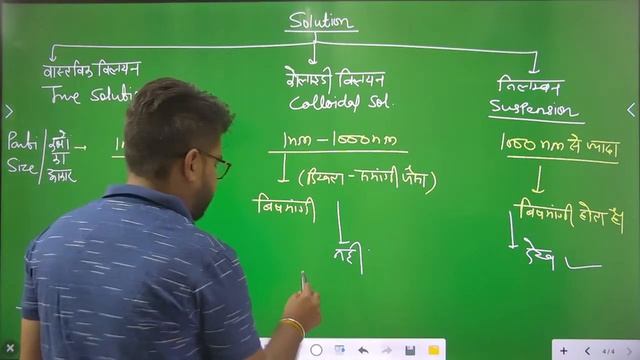 Solution
वास्तविक विलयन
True Soluti
कोलाइडी विलयन
Colloidal Sol.
निलम्बन
Suspension
Parti
Size/
कणों
का
आकार
1nm - 1000nm
1000 nm से ज्यादा
(दिखता - समांगी जैसा)
विषमांगी
विषमांगी होता है।
नहीं
देख ✓
4/4